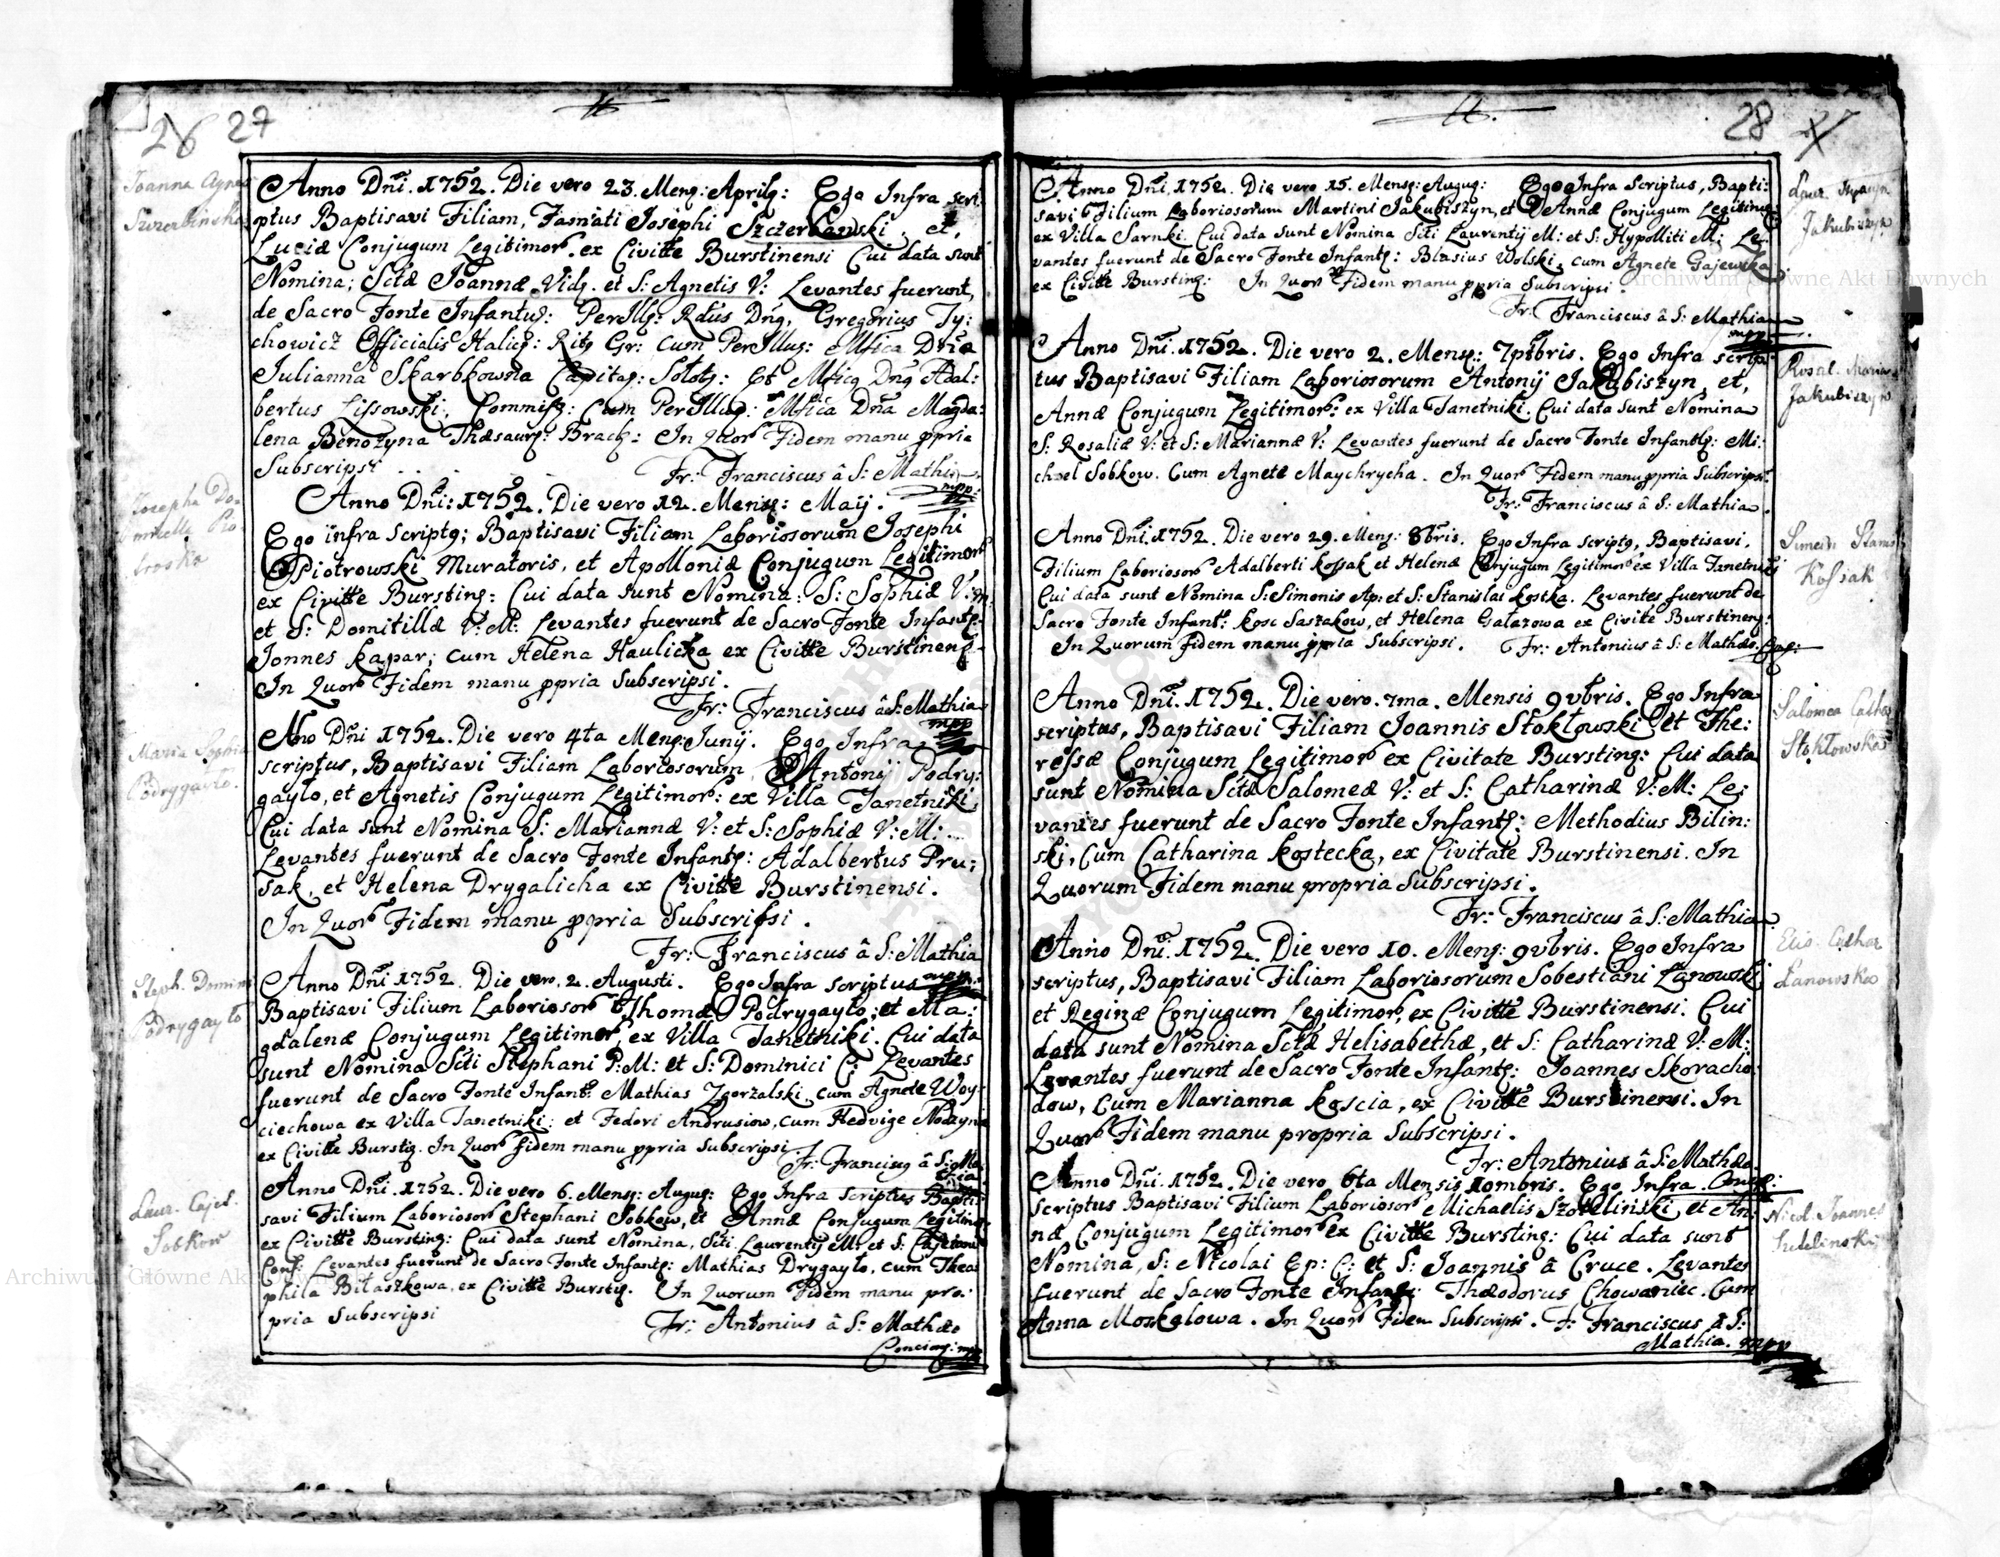 26 27
Joanna Agnes
Szczerbinska
Anno Dñi. 1752. Die vero 23. Mensꝫ: Aprilꝫ: Ego Infra scri:
ptus Baptisavi Filiam, Famati Josephi Szczerbawski, et,
Luciæ Conjugum Legitimor. ex Civitte Burstinensi Cui data sunt
Nomina; Sctæ Joannæ Vidꝫ. et S: Agnetis V: Levantes fuerunt,
de Sacro Fonte Infantuꝫ: PerIllꝫ: Rdus Dnꝫ, Gregorius Ty:
chowicz Officialis Halicꝫ: Ritꝫ Gr: cum PerIlluꝫ: Mfica Dña
Julianna Skarbkowna Capitaꝫ: Solotꝫ: Et Mficꝫ Dnꝫ Adal:
bertus Lissowski, Commisꝫ: Cum PerIlluꝫ: Mfica Dña Magda:
lena Benozyna Thæsaurꝫ: Bracꝫ: In Quor Fidem manu ppria
Subscripsi . . . Fr: Franciscus â S: Mathia
mpp:
Josepha Do-
mitella Pio-
trowska
Anno Dñi: 1752. Die vero 12. Mensꝫ: Maÿ.
Ego infra scriptꝫ; Baptisavi Filiam Laboriosorum Josephi
Piotrowski Muratoris, et Apolloniæ Conjugum Legitimor
ex Civitte Burstinꝫ: Cui data sunt Nomina: S: Sophiæ V: m:
et S: Domitillæ V: M: Levantes fuerunt de Sacro Fonte Infantꝫ:
Jonnes Kapar; cum Helena Haulicka ex Civitte Burstinenꝫ:
In Quor Fidem manu ppria Subscripsi.
Fr: Franciscus â S: Mathia
mpp
Maria Sophia
Podrygayło.
Ano Dñi 1752. Die vero 4ta Mensꝫ: Junÿ. Ego Infra
scriptus, Baptisavi Filiam Laboriosorum, Antonÿ Podry:
gaylo, et Agnetis Conjugum Legitimor: ex Villa Janetniki,
Cui data sunt Nomina S: Mariannæ V: et S: Sophiæ V: M: ...
Levantes fuerunt de Sacro Fonte Infantꝫ: Adalbertus Pru;
sak, et Helena Drygalicha ex Civitte Burstinensi.
In Quor Fidem manu ppria Subscripsi.
Fr: Franciscus â S: Mathia
mpp:
Steph. Domin
Podrygayło
Anno Dñi 1752. Die vero. 2. Augusti. Ego Infra scriptus
Baptisavi Filium Laboriosor Thomæ Podrygayło, et Ma:
gdalenæ Conjugum Legitimor, ex Villa Janetniki. Cui data
sunt Nomina Scti Stephani P: M: et S: Dominici C: Levantes
fuerunt de Sacro Fonte Infant: Mathias Zgorzalski, cum Agnete Woy-
ciechowa ex Villa Janetniki: et Fedori Andrusiow, cum Hedvige Nodzyna
ex Civitte Burstiꝫ. In Quor Fidem manu ppria Subscripsi.
Fr: Franciscꝫ â S: Ma:
thia
Laur. Cajet.
Sobkow
Anno Dñi. 1752. Die vero 6. Mensꝫ: Auguꝫ: Ego Infra Scriptus Bapti:
savi Filium Laboriosor Stephani Sobkow, et Annæ Conjugum Legitimor
ex Civitte Burstinꝫ: Cui data sunt Nomina, Scti Laurentÿ M: et S: Cajetani
Conf: Levantes fuerunt de Sacro Fonte Infantꝫ: Mathias Drygayło, cum Theo
phila Biłaszkowa, ex Civitte Burstiꝫ. In Quorum Fidem manu pro:
pria Subscripsi Fr: Antonius â S: Mathæo
Concionꝫ: mpp
28 27
Laur. Hypolyt
Jakubiszyn
Anno Dñi. 1752. Die vero 15. Mensꝫ: Auguꝫ: Ego Infra Scriptus, Bapti:
savi Filium Laboriosorum Martini Jakubiszyn, et Annæ Conjugum Legitimor
ex Villa Sarnki. Cui data sunt Nomina Scti Laurentÿ M: et S: Hypolliti M: Le:
vantes fuerunt de Sacro Fonte Infantꝫ: Blasius Wolski, cum Agnete Gajewska
ex Civitte Burstinꝫ: In Quor Fidem manu ppria Subscripsi.
Fr: Franciscus â S: Mathia
mpp:
Rosal. Mariana
Jakubiszyn
Anno Dñi. 1752. Die vero 2. Mensꝫ: 7ptbris. Ego Infra scrip:
tus Baptisavi Filiam Laboriosorum Antonÿ Jakubiszyn, et,
Annæ Conjugum Legitimor: ex Villa Janetniki. Cui data sunt Nomina
S: Rosaliæ V: et S: Mariannæ V: Levantes fuerunt de Sacro Fonte Infantꝫ: Mi:
chael Sobkow. Cum Agnete Maychrycha. In Quor Fidem manu ppria Subscripsi.
Fr: Franciscus â S: Mathia.
Simeon Stanis
Kossak
Anno Dñi. 1752. Die vero 29. Mensꝫ: 8bris. Ego Infra scriptꝫ, Baptisavi,
Filium Laboriosor Adalberti Kossak et Helenæ Conjugum Legitimor ex Villa Janetniki
Cui data sunt Nomina S: Simonis Ap: et S: Stanislai Kostka. Levantes fuerunt de
Sacro Fonte Infant: Kosc Saszakow, et Helena Galazowa ex Civitte Burstinenꝫ:
In Quorum fidem manu ppria Subscripsi. Fr: Antonius â S: Mathæo.
Salomea Catha
Stokłowska
Anno Dñi. 1752. Die vero. 7ma. Mensis 9vbris. Ego Infra
scriptus, Baptisavi Filiam Joannis Stokłowski et The:
ressæ Conjugum Legitimor ex Civitate Burstinꝫ: Cui data
sunt Nomina Sctæ Salomeæ V: et S: Catharinæ V: M: Le:
vantes fuerunt de Sacro Fonte Infantꝫ: Methodius Bilin:
ski, Cum Catharina Kostecka, ex Civitate Burstinensi. In
Quorum Fidem manu propria Subscripsi.
Fr: Franciscus â S: Mathia
Elis. Cathar
Łanowska
Anno Dñi. 1752. Die vero 10. Mensꝫ: 9vbris. Ego Infra
scriptus, Baptisavi Filiam Laboriosorum Sobestiani Łanowski
et Reginæ Conjugum Legitimor, ex Civitte Burstinensi. Cui
data sunt Nomina Sctæ Helisabethæ, et S: Catharinæ V: M:
Levantes fuerunt de Sacro Fonte Infantꝫ: Joannes Skoracho:
dow, Cum Marianna Koscia, ex Civitte Burstinensi. In
Quor Fidem manu propria Subscripsi.
Fr: Antonius â S: Mathæo
Nicol. Joannes
Anno Dñi. 1752. Die vero 6ta Mensis 10mbris. Ego Infra
scriptus Baptisavi Filium Laboriosor Michaelis Szotelinski, et An:
næ Conjugum Legitimor ex Civitte Burstinꝫ: Cui data sunt
Nomina, S: Nicolai Ep: C: et S: Joannis â Cruce. Levantes
fuerunt de Sacro Fonte Infantꝫ: Thæodorus Chowaniec. Cum
Anna Moskalowa. In Quor Fidem Subscripsi. Fr Franciscus â S:
Mathia. mpp
Archiwum Główne Akt Dawnych
Archiwum Główne Akt Dawnych